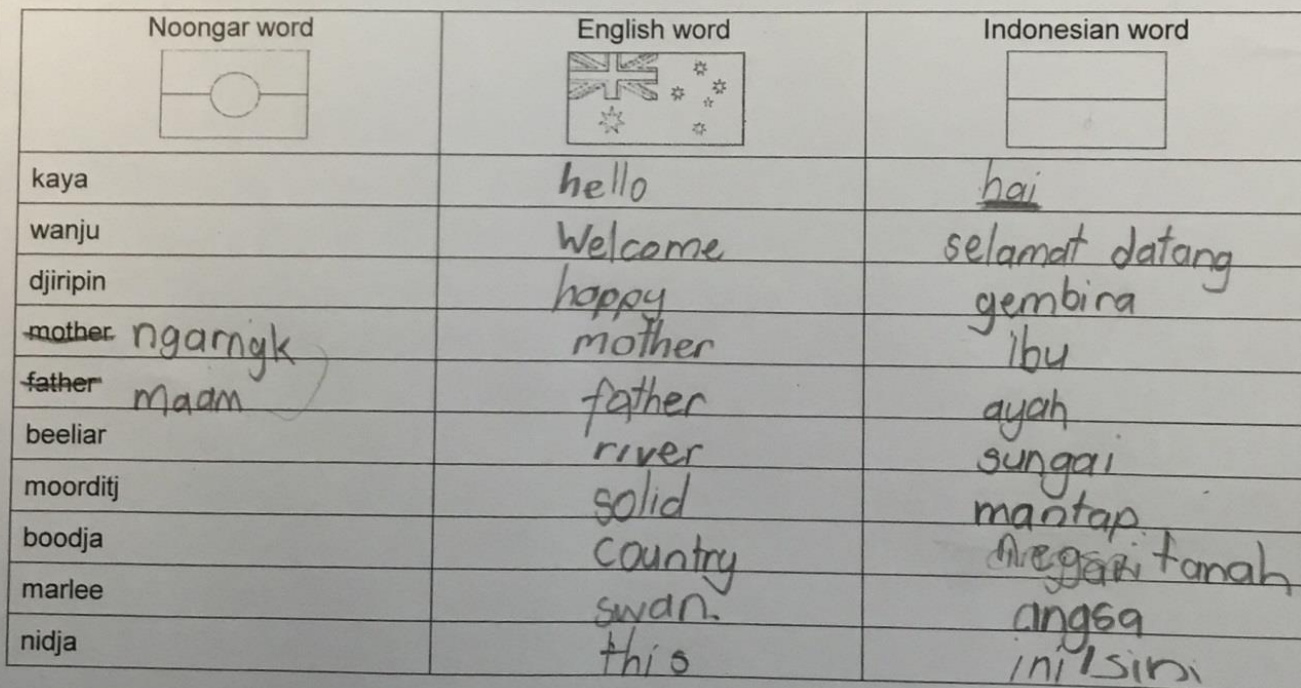 Noongar word English word Indonesian word
kaya hello hai
wanju Welcome selamat datang
djiripin happy gembira
mother ngarngk mother ibu
father maam father ayah
beeliar river sungai
moorditj solid mantap
boodja country negari tanah
marlee swan. angsa
nidja this ini/sini